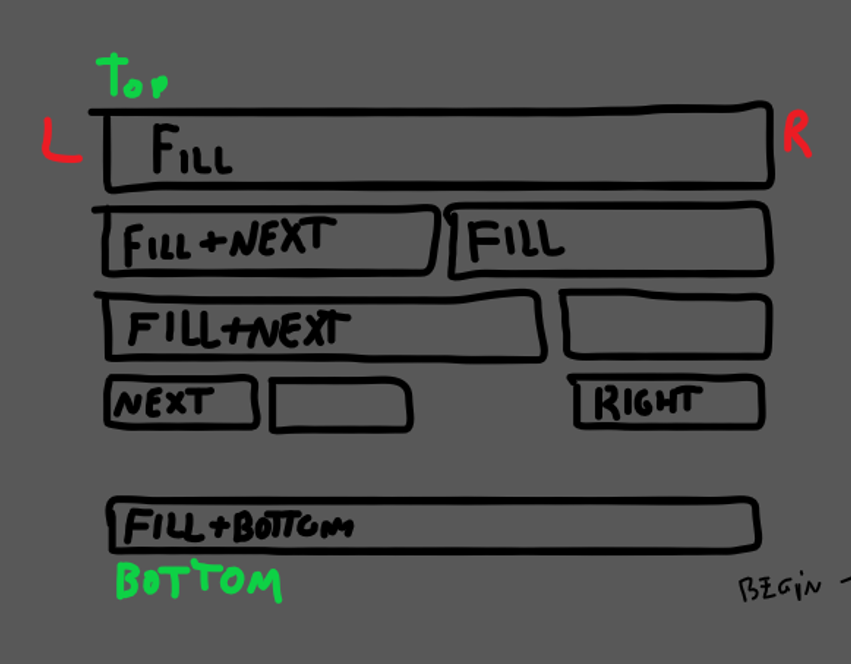 TOP
L FILL R
FILL+NEXT FILL
FILL+NEXT
NEXT RIGHT
FILL+BOTTOM
BOTTOM
BEGIN -